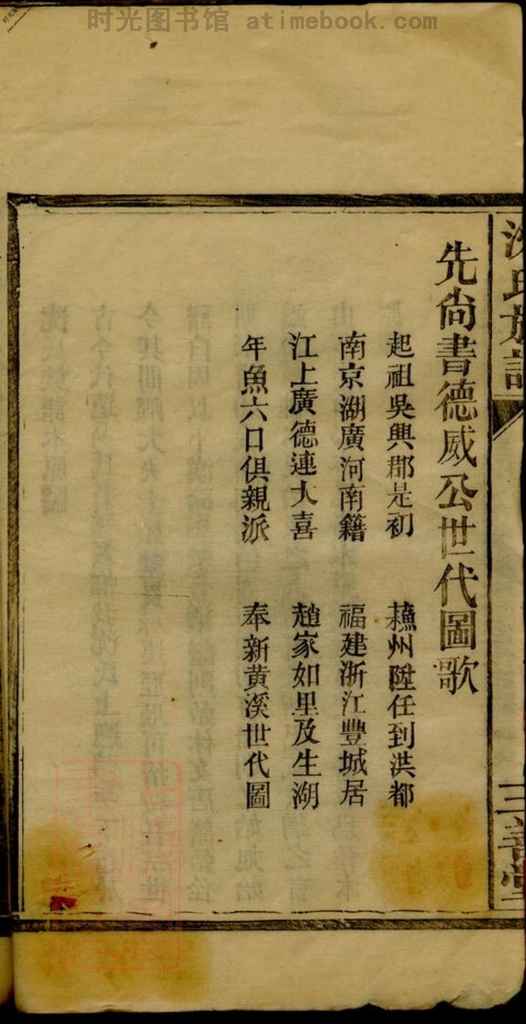 时光图书馆 atimebook.com
沈氏族譜
三善堂
先尚書德威公世代圖歌
起祖吳興郡是初 蘓州陞任到洪都
南京湖廣河南籍 福建浙江豐城居
江上廣德連大喜 趙家如里及生湖
年魚六口俱親派 奉新黄溪世代圖